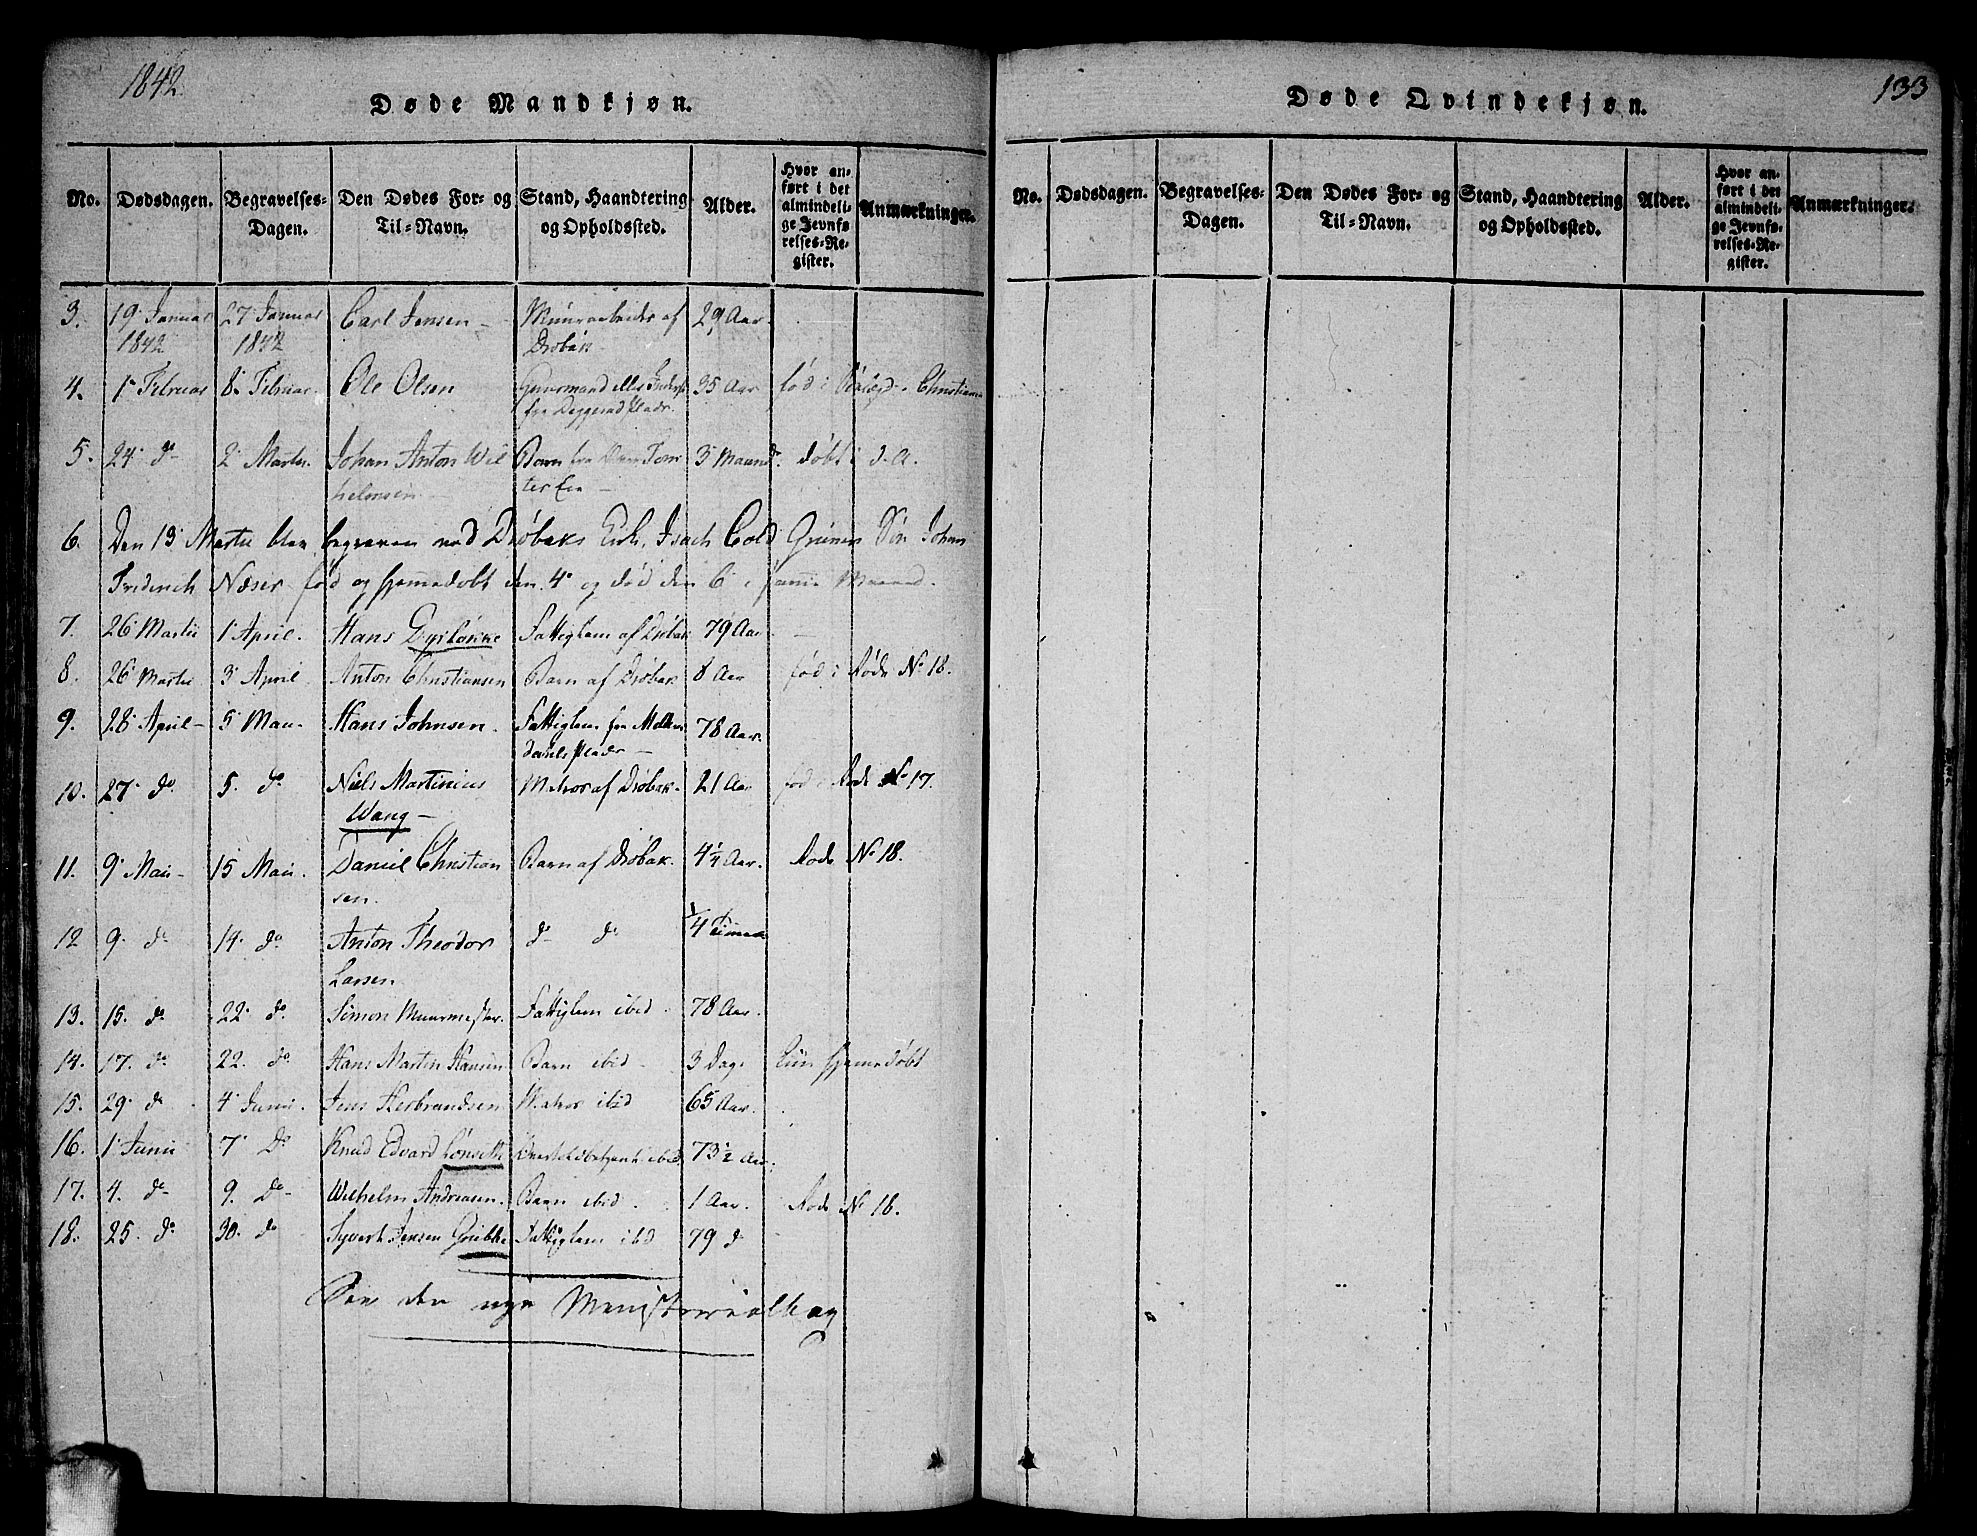 1842.
Døde Mandkjøn.
No. Dødsdagen. Begravelses-Dagen. Den Dødes For- og Til-Navn. Stand, Haandtering og Opholdssted. Alder. Hvor anført i det almindelige Jevnførelses-Register. Anmærkninger.
3. 19 Januar 1842 27 Januar 1842 Carl Jensen – af Drøbak 29 Aar.
4. 1 Februar 8 Februar. Ole Olsen 35 Aar fød i
5. 24 do 2 Martii. Johan Anton Wilhelmsen – Barn fra 3 Maand. døbt i d. A.
6. Den 13 Martii blev begraven ved Drøbaks Kirke, Isach Cold Gruners Søn Johan
Friderich Næser fød og hjemmedøbt den 4 og død den 6 i samme Maaned.
7. 26 Martii 1 April. Hans Dyrløkke Fattiglem af Drøbak 79 Aar –
8. 26 Martii 3 April. Anton Christiansen Barn af Drøbak 8 Aar fød i Rode No 18.
9. 28 April – 5 Mai – Hans Johnsen. Fattiglem fra 78 Aar.
10. 27 do 5. do Niels Martinius Wang – Matros af Drøbak – 21 Aar fød i Rode No 17.
11. 9 Mai – 15 Mai. Daniel Christiansen. Barn af Drøbak. 4 1/4 Aar. Rode No 18.
12 9. do 14. do Anton Theodor Larsen do do 1/4 Time
13. 15. do 22. do Simon Muurmester. Fattiglem ibid. 78 Aar.
14. 17. do 22. do Hans Martin Hansen Barn ibid – 3 Dage hjemmedøbt
15. 29 do 4 Junii. Jens Herbrandsen Matros ibid 65 Aar.
16. 1 Junii 7 do Knud Edvard ibid 73 1/2 Aar.
17. 4. do 9. do Wilhelm Andreasen. Barn ibid. 1 Aar. Rode No 16.
18. 25. do 30. do Syvert Jensen Grübbe Fattiglem ibid 79 do
See den nye Ministerialbog
133
Døde Qvindekjøn.
No. Dødsdagen. Begravelses-Dagen. Den Dødes For- og Til-Navn. Stand, Haandtering og Opholdssted. Alder. Hvor anført i det almindelige Jevnførelses-Register. Anmærkninger.